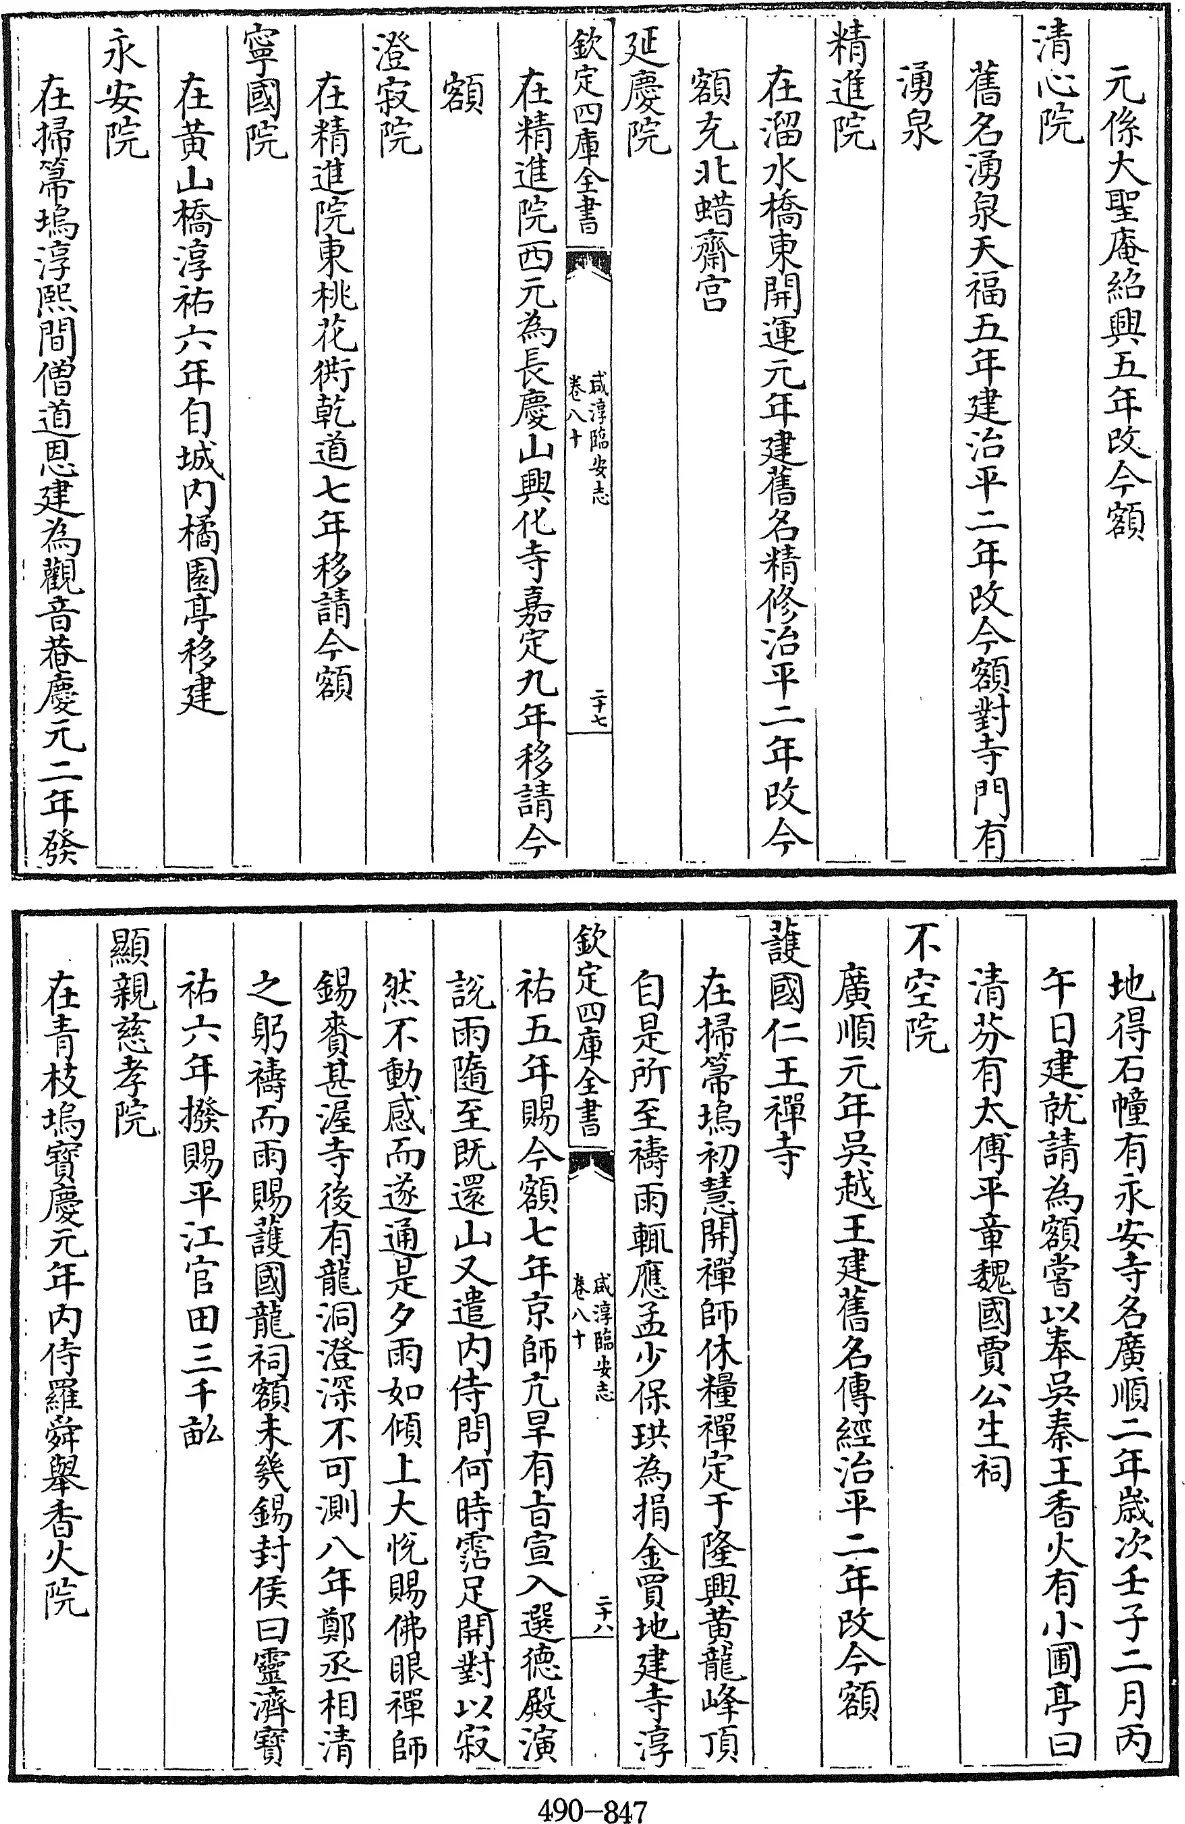 元係大聖庵紹興五年改今額
清心院
舊名湧泉天福五年建治平二年改今額對寺門有
湧泉
精進院
在溜水橋東開運元年建舊名精修治平二年改今
額充北蜡齋宫
延慶院
欽定四庫全書
咸淳臨安志
卷八十
二十七
在精進院西元為長慶山興化寺嘉定九年移請今
額
澄寂院
在精進院東桃花衖乾道七年移請今額
寧國院
在黄山橋淳祐六年自城内橘園亭移建
永安院
在掃箒塢淳熙間僧道恩建為觀音菴慶元二年發
地得石幢有永安寺名廣順二年歲次壬子二月丙
午日建就請為額嘗以奉吳秦王香火有小圃亭曰
清芬有太傅平章魏國賈公生祠
不空院
廣順元年吳越王建舊名傳經治平二年改今額
護國仁王禪寺
在掃箒塢初慧開禪師休糧禪定于隆興黄龍峰頂
自是所至禱雨輒應孟少保珙為捐金買地建寺淳
欽定四庫全書
咸淳臨安志
卷八十
二十八
祐五年賜今額七年京師亢旱有旨宣入選德殿演
說雨隨至既還山又遣内侍問何時霑足開對以寂
然不動感而遂通是夕雨如傾上大悅賜佛眼禪師
錫賚甚渥寺後有龍洞澄深不可測八年鄭丞相清
之躬禱而雨賜護國龍祠額未幾錫封侯曰靈濟寶
祐六年撥賜平江官田三千畝
顯親慈孝院
在青枝塢寶慶元年内侍羅舜舉香火院
490-847